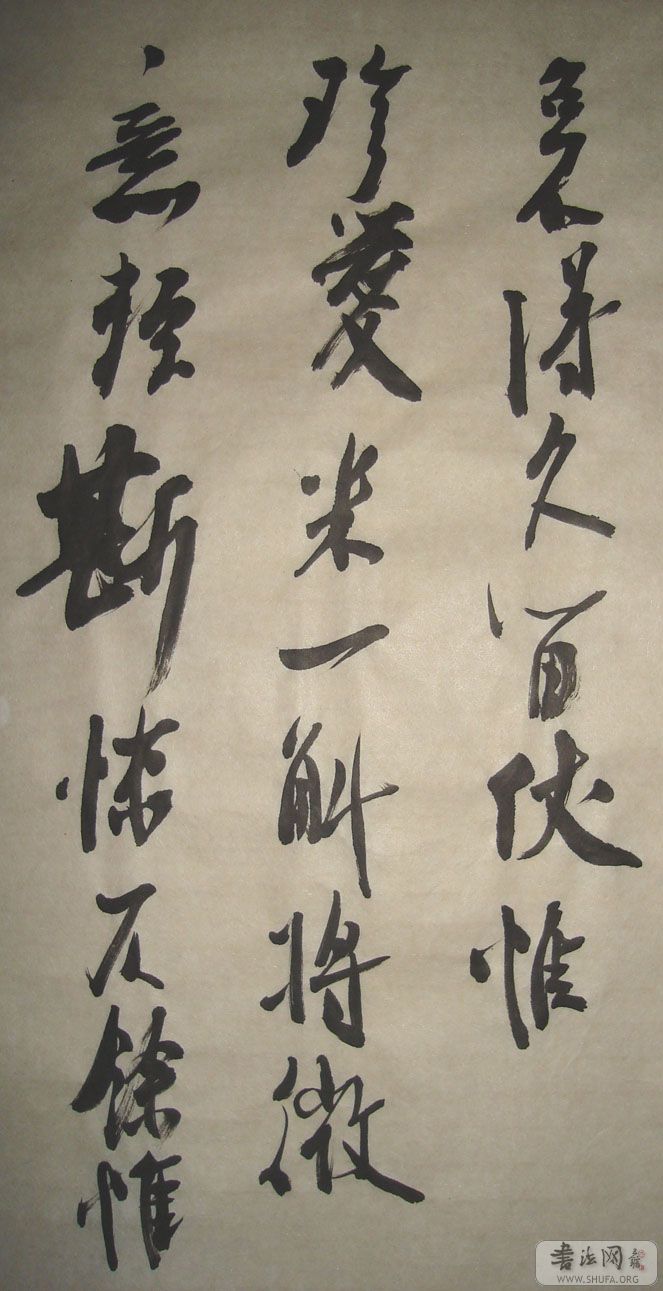 召不得久留伏惟
珍愛米一斛將微
意輕尠悚仄餘惟
書法网
WWW.SHUFA.ORG